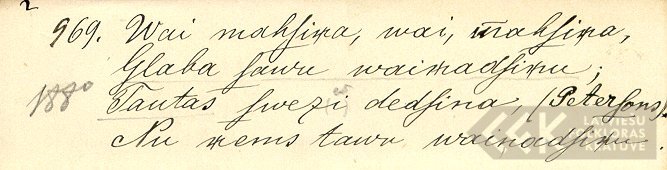 969. Wai mahſiņa, wai, mahſiņa,
Glaba ſawu wainadſiņu;
1880 Tautas ſwezi dedſina, (Peterſons).
Nu ņems tawu wainadſiņu.
LATVIEŠU
FOLKLORAS
KRĀTUVE